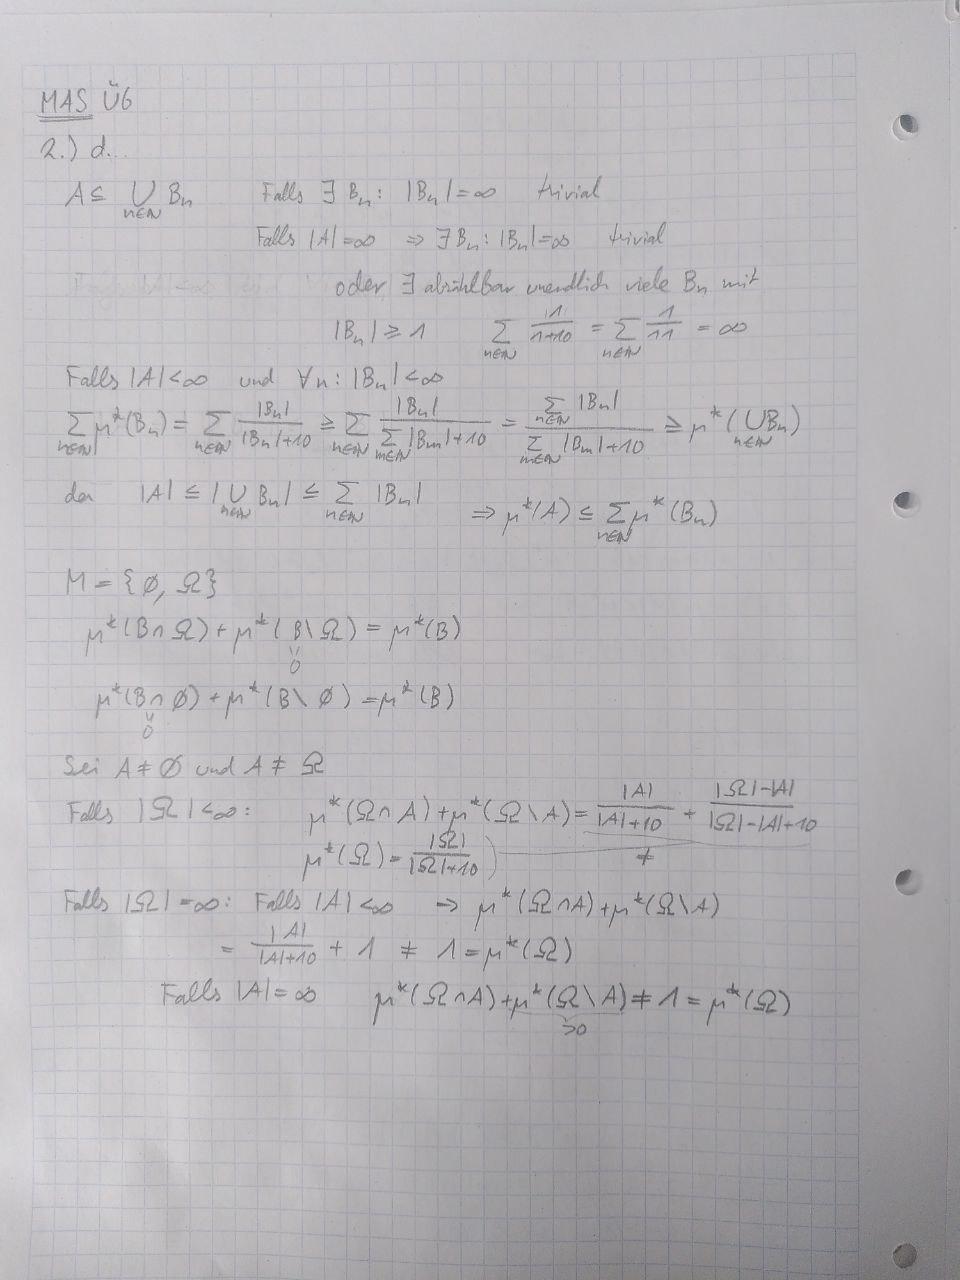 MAS Ü6
2.) d...
A ⊆ ⋃_{n∈ℕ} B_n Falls ∃ B_n: |B_n| = ∞ trivial
Falls |A| = ∞ ⇒ ∃ B_n: |B_n| = ∞ trivial
oder ∃ abzählbar unendlich viele B_n mit
|B_n| ≥ 1 ∑_{n∈ℕ} 1/(1+10) = ∑_{n∈ℕ} 1/11 = ∞
Falls |A| < ∞ und ∀n: |B_n| < ∞
∑_{n∈ℕ} μ*(B_n) = ∑_{n∈ℕ} |B_n|/(|B_n|+10) ≥ ∑_{n∈ℕ} |B_n|/(∑_{m∈ℕ} |B_m|+10) = (∑_{n∈ℕ} |B_n|)/(∑_{m∈ℕ} |B_m|+10) ≥ μ*(⋃_{n∈ℕ} B_n)
da |A| ≤ |⋃_{n∈ℕ} B_n| ≤ ∑_{n∈ℕ} |B_n| ⇒ μ*(A) ≤ ∑_{n∈ℕ} μ*(B_n)
M = {∅, Ω}
μ*(B∩Ω) + μ*(B\Ω) = μ*(B)
0
μ*(B∩∅) + μ*(B\∅) = μ*(B)
0
Sei A ≠ ∅ und A ≠ Ω
Falls |Ω| < ∞: μ*(Ω∩A) + μ*(Ω\A) = |A|/(|A|+10) + (|Ω|-|A|)/(|Ω|-|A|+10)
μ*(Ω) = |Ω|/(|Ω|+10) ≠
Falls |Ω| = ∞: Falls |A| < ∞ ⇒ μ*(Ω∩A) + μ*(Ω\A)
= |A|/(|A|+10) + 1 ≠ 1 = μ*(Ω)
Falls |A| = ∞ μ*(Ω∩A) + μ*(Ω\A) ≠ 1 = μ*(Ω)
>0